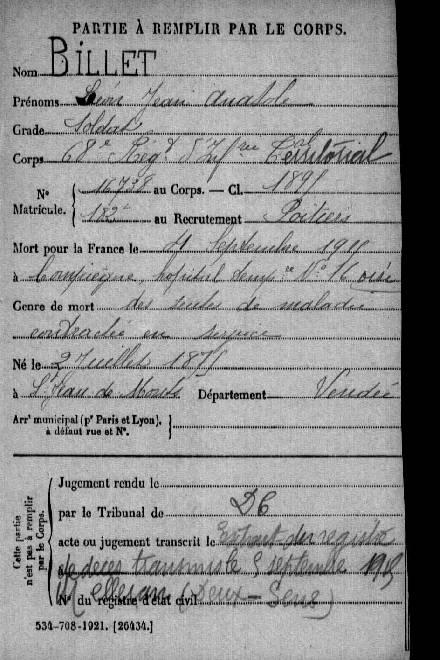 PARTIE À REMPLIR PAR LE CORPS.
Nom BILLET
Prénoms Jean Anatole
Grade Soldat
Corps 68e Régt d'Infrie Territorial
N° Matricule. au Corps. — Cl. 1891
au Recrutement Poitiers
Mort pour la France le Septembre
à Compiègne, hôpital temp re N° Oise
Genre de mort des suites de maladie
contractée en service
Né le 2 Juillet 1871
à St Jean de Monts Département Vendée
Arrt municipal (pr Paris et Lyon),
à défaut rue et N°.
Cette partie n'est pas à remplir par le Corps.
Jugement rendu le
par le Tribunal de DC
acte ou jugement transcrit le Extrait du registre
de décès transmis le septembre 1915
N° du registre d'état civil (Deux-Sèvres)
534-708-1921. [26434.]